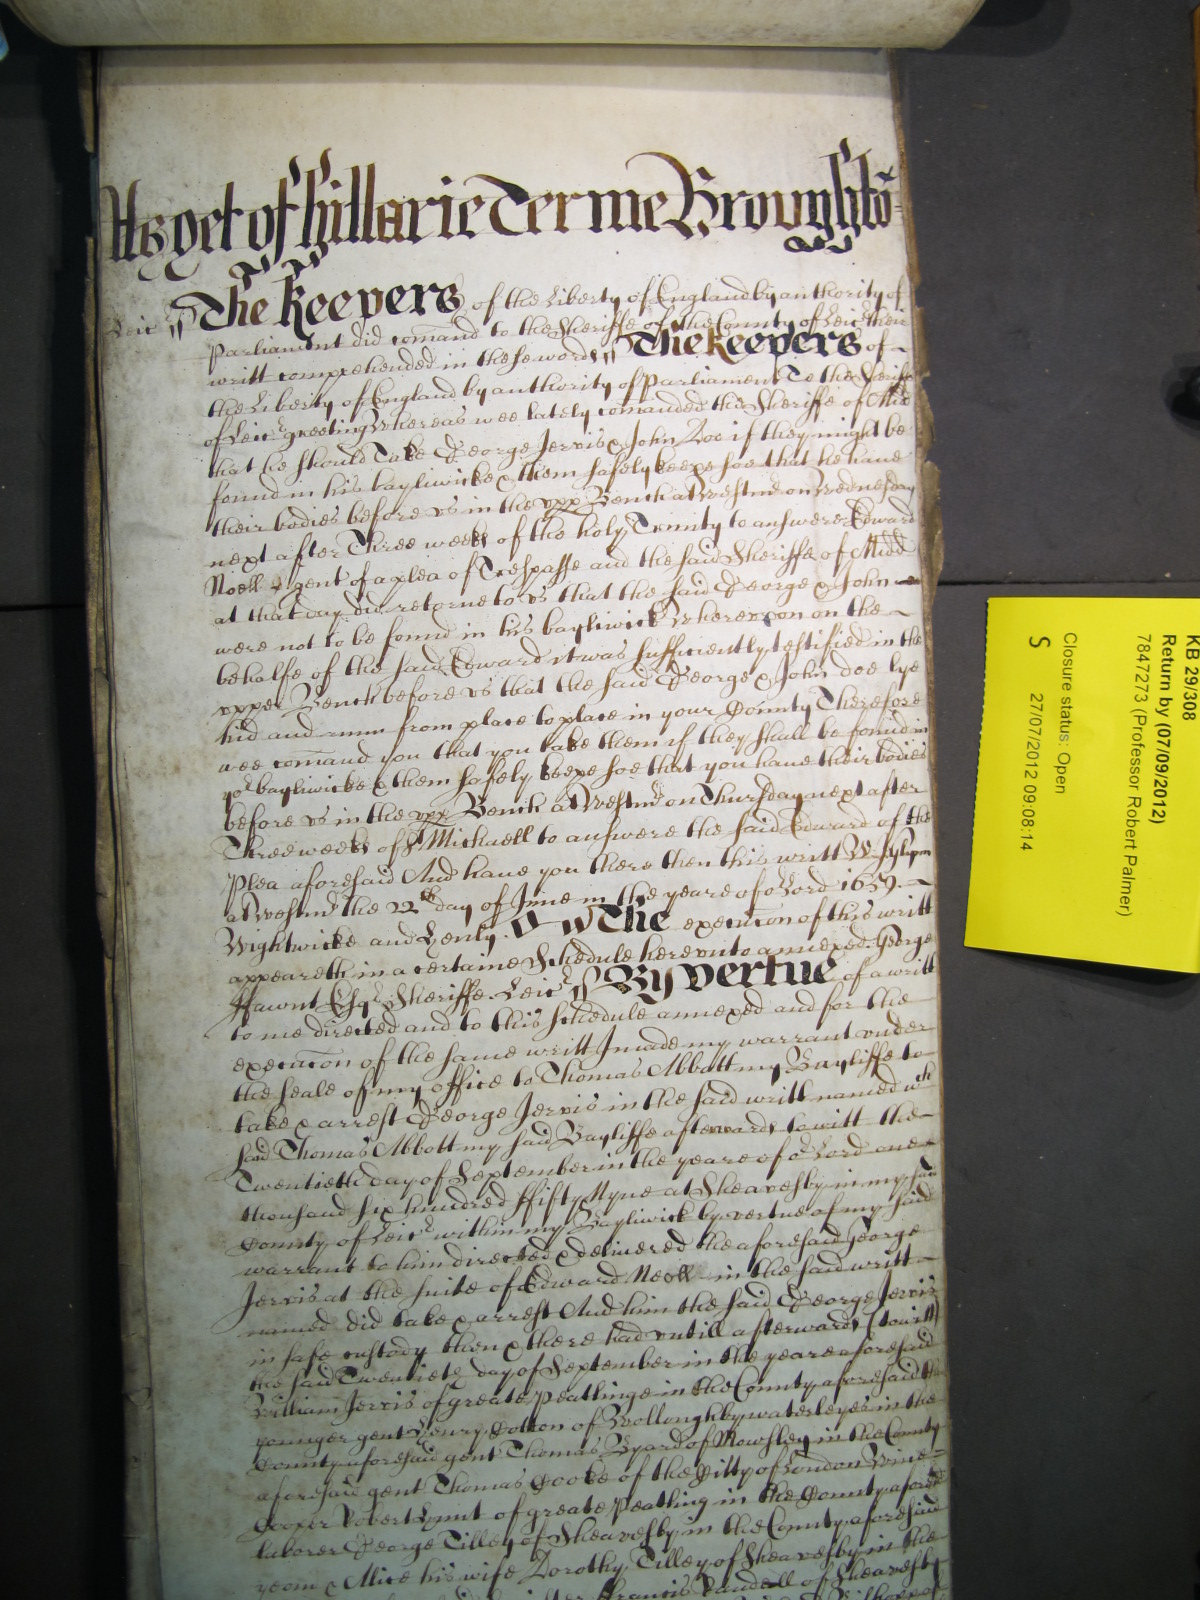 As yet of Hillarie Terme Broughtō
Leic ss The Keepers of the Liberty of England by authority of
Parliament did comand to the Sheriffe of the County of Leic their
writt comprehended in these words ss The Keepers of
the Liberty of England by authority of Parliament To the Sheriffe
of Leic greeting Whereas wee lately comanded the Sheriffe of Midd
that he should take George Jervis & John Doe if they might be
found in his bayliwicke & them safely keepe soe that he have
their bodies before us in the upp Bench at Westmr on Wednesday
next after Three weeks of the holy Trinity to answere Edward
Noell gent of a plea of Trespasse and the said Sheriffe of Midd
at that day did retorne to us that the said George & John
were not to be found in his bayliwick Whereupon on the
behalfe of the said Edward it was sufficiently testified in the
upper Bench before us that the said George & John doe lye
hid and runn from place to place in your County Therefore
wee comand you that you take them if they shall be found in
yor bayliwicke & them safely keepe soe that you have their bodies
before us in the upp Bench at Westmr on Thursday next after
Three weeks of St Michaell to answere the said Edward of the
Plea aforesaid And have you there then this writt
at Westmr the 22th day of June in the yeare of or Lord 1659.
Wightwicke and The execucon of this writt
appeareth in a certaine Schedule hereunto annexed. George
Fawnt Esqr Sheriffe. Leic ss By vertue of a writt
to me directed and to this schedule annexed and for the
execucon of the same writt I made my warrant under
the seale of my office to Thomas Abbott my Bayliffe to
take & arrest George Jervis in the said writt named wch
said Thomas Abbott my said Bayliffe afterwards to witt the
Twentieth day of September in the yeare of or Lord one
thousand six hundred fifty Nyne at Sheavesby in my said
County of Leic within my Bayliwick by vertue of my said
warrant to him directed & delivered the aforesaid George
Jervis at the suite of Edward Noell in the said writt
named did take & arrest And him the said George Jervis
in safe custody then & there had untill afterwards (to witt)
the said Twentieth day of September in the yeare aforesaid
William Jervis of greate Peatlinge in the County aforesaid the
younger gent Henry Cotton of Wolloughby waterleyes in the
County aforesaid gent Thomas Byard of Mowsley in the County
aforesaid gent Thomas Cooke of the Citty of London Wine
Cooper Robert of greate Peatling in the County aforesd
laborer George Tilley of Sheavesby in the County aforesaid
yeom & Alice his wife Dorothy Tilley of Sheavesby in the
Francis Randell of Sheavesby
KB 29/308
Return by (07/09/2012)
7847273 (Professor Robert Palmer)
Closure status: Open
S 27/07/2012 09:08:14